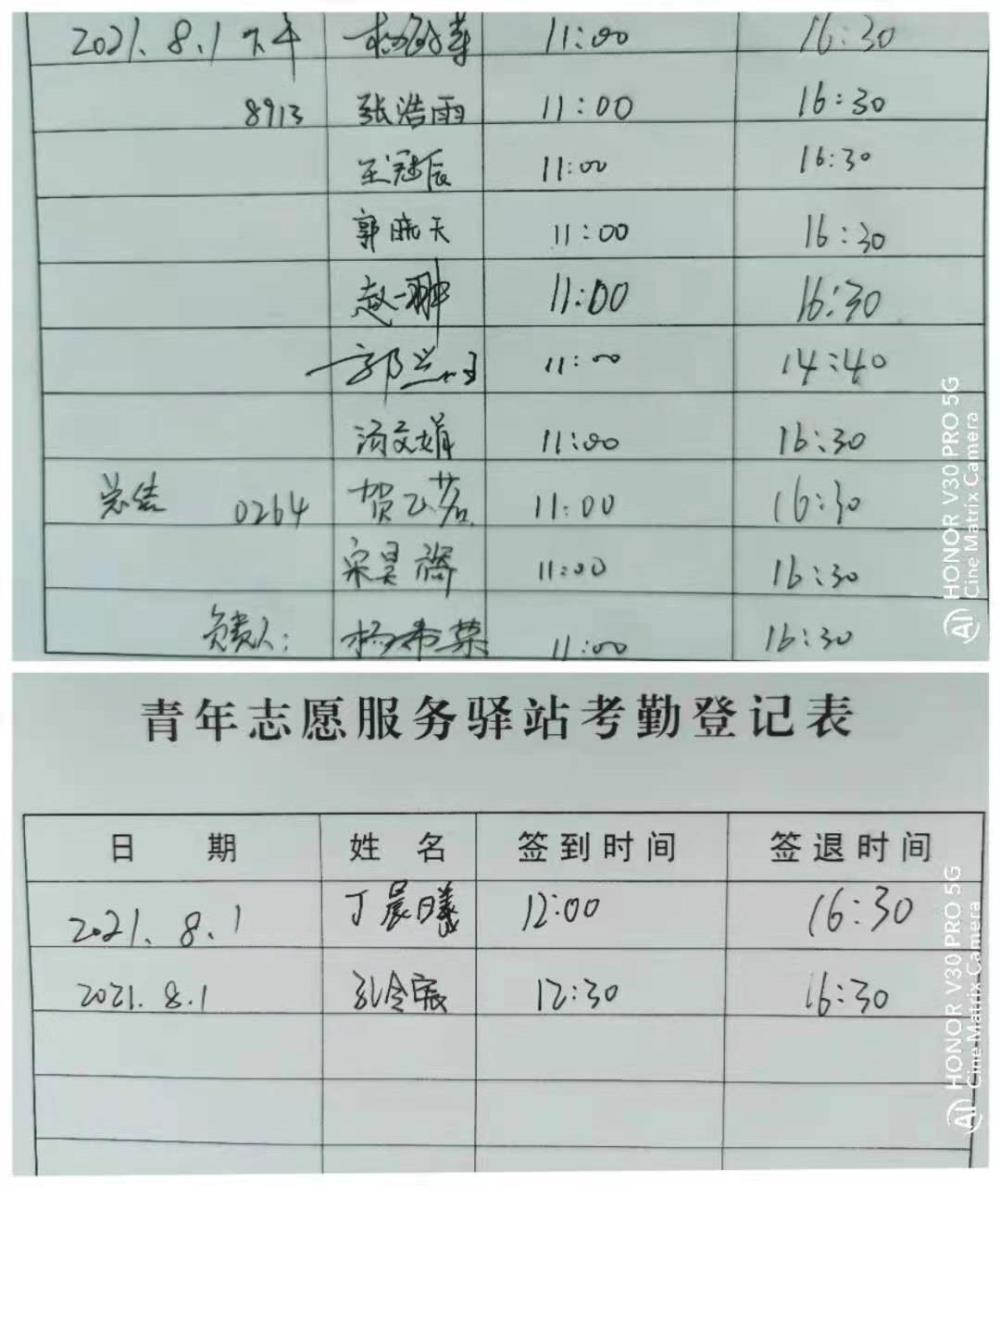 2021.8.1 下午 11:00 16:30
8913 张浩雨 11:00 16:30
王冠辰 11:00 16:30
郭晓天 11:00 16:30
赵一翀 11:00 16:30
郭 11:00 14:40
汤文娟 11:00 16:30
总结 0264 贺乙茗 11:00 16:30
宋昊 11:00 16:30
负责人: 杨希荣 11:00 16:30
HONOR V30 PRO 5G
Cine Matrix Camera
青年志愿服务驿站考勤登记表
日期 姓名 签到时间 签退时间
2021.8.1 丁晨曦 12:00 16:30
2021.8.1 孔令宸 12:30 16:30
HONOR V30 PRO 5G
Cine Matrix Camera